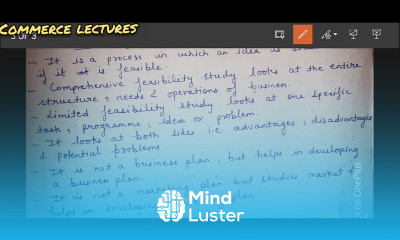 COMMERCE LECTURES
3 of 3
- It is a process in which an idea is
if it is feasible.
- Comprehensive feasibility study looks at the entire
structure, needs & operations of business.
- Limited feasibility study looks at one specific
task, programme, idea or problem.
- It looks at both sides i.e advantages, disadvantages
& potential problems
- It is not a business plan, but helps in developing
a business plan.
- It is not a marketing plan but studies market &
helps in developing plan
Shot on OnePlus
Mind
Luster